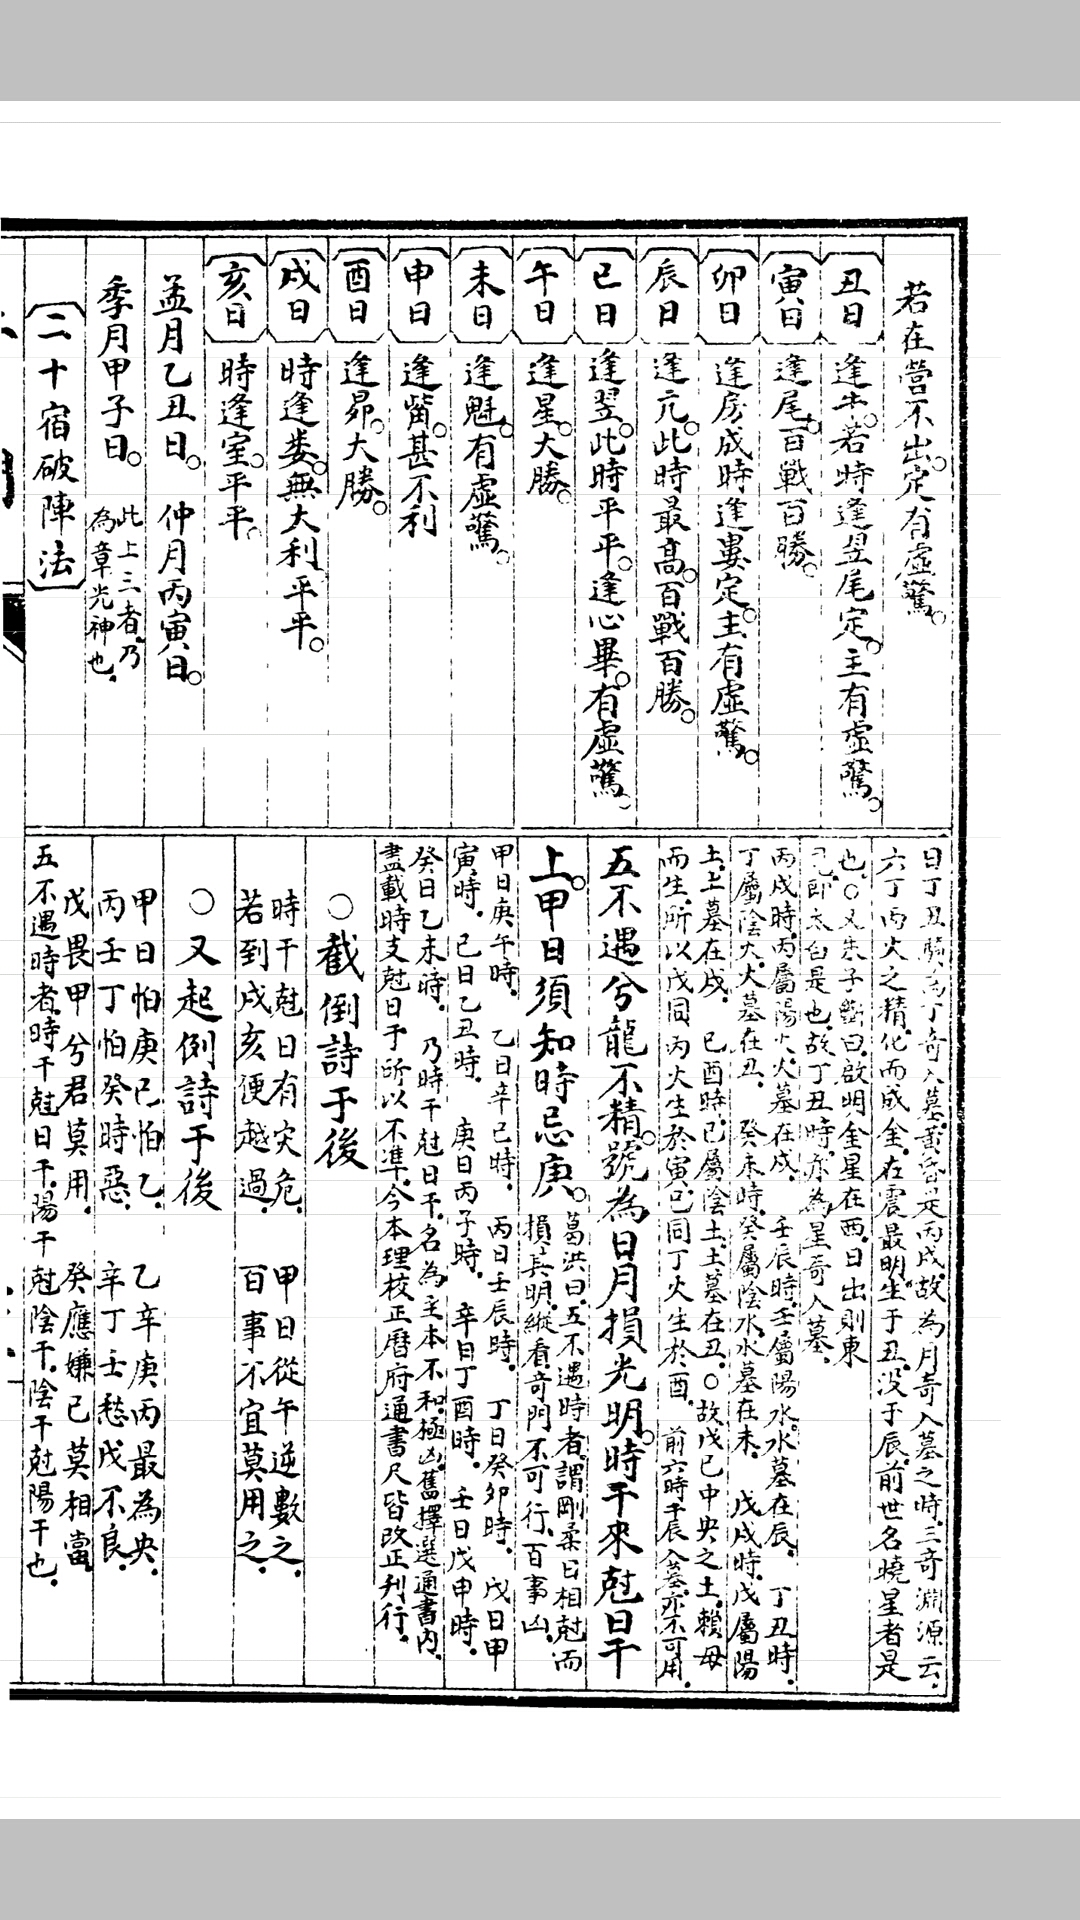 若在營不出定有虛驚
丑日 逢牛若時逢昱尾定主有虛驚
寅日 逢尾百戰百勝
卯日 逢房成時逢婁定主有虛驚
辰日 逢亢此時最高百戰百勝
巳日 逢翌此時平平逢心畢有虛驚
午日 逢星大勝
未日 逢魁有虛驚
申日 逢觜甚不利
酉日 逢昴大勝
戌日 時逢婁無大利平平
亥日 時逢室平平
孟月乙丑日 仲月丙寅日
季月甲子日 此上三者乃
為章光神也
二十宿破陣法
日丁丑時為丁奇入墓黃昏是丙戌故為月奇入墓之時三奇淵源云
六丁丙火之精化而成金在震最明生于丑沒于辰前世名曉星者是
也○又朱子斷曰啟明金星在西日出則東
見即太白是也故丁丑時亦為星奇入墓
丙戌時丙屬陽火火墓在戌 壬辰時壬屬陽水水墓在辰 丁丑時
丁屬陰火火墓在丑 癸未時癸屬陰水水墓在未 戊戌時戊屬陽
土土墓在戌 己酉時己屬陰土土墓在丑○故戊己中央之土賴母
而生所以戊同丙火生於寅己同丁火生於酉 前六時干辰入墓亦不可用
五不遇兮龍不精號為日月損光明時干來尅日干
上甲日須知時忌庚 葛洪曰五不遇時者謂剛柔日相尅而
損其明縱看奇門不可行百事凶
甲日庚午時 乙日辛巳時 丙日壬辰時 丁日癸卯時 戊日甲
寅時 己日乙丑時 庚日丙子時 辛日丁酉時 壬日戊申時
癸日乙未時 乃時干尅日干名為主本不和極凶舊擇選通書內
盡載時支尅日干所以不準今本理校正曆府通書尺皆改正刋行
○截倒詩于後
時干尅日有灾危 甲日從午逆數之
若到戌亥便越過 百事不宜莫用之
○又起例詩于後
甲日怕庚己怕乙 乙辛庚丙最為央
丙壬丁怕癸時惡 辛丁壬愁戊不良
戊畏甲兮君莫用 癸應嫌己莫相當
五不遇時者時干尅日干陽干尅陰干陰干尅陽干也